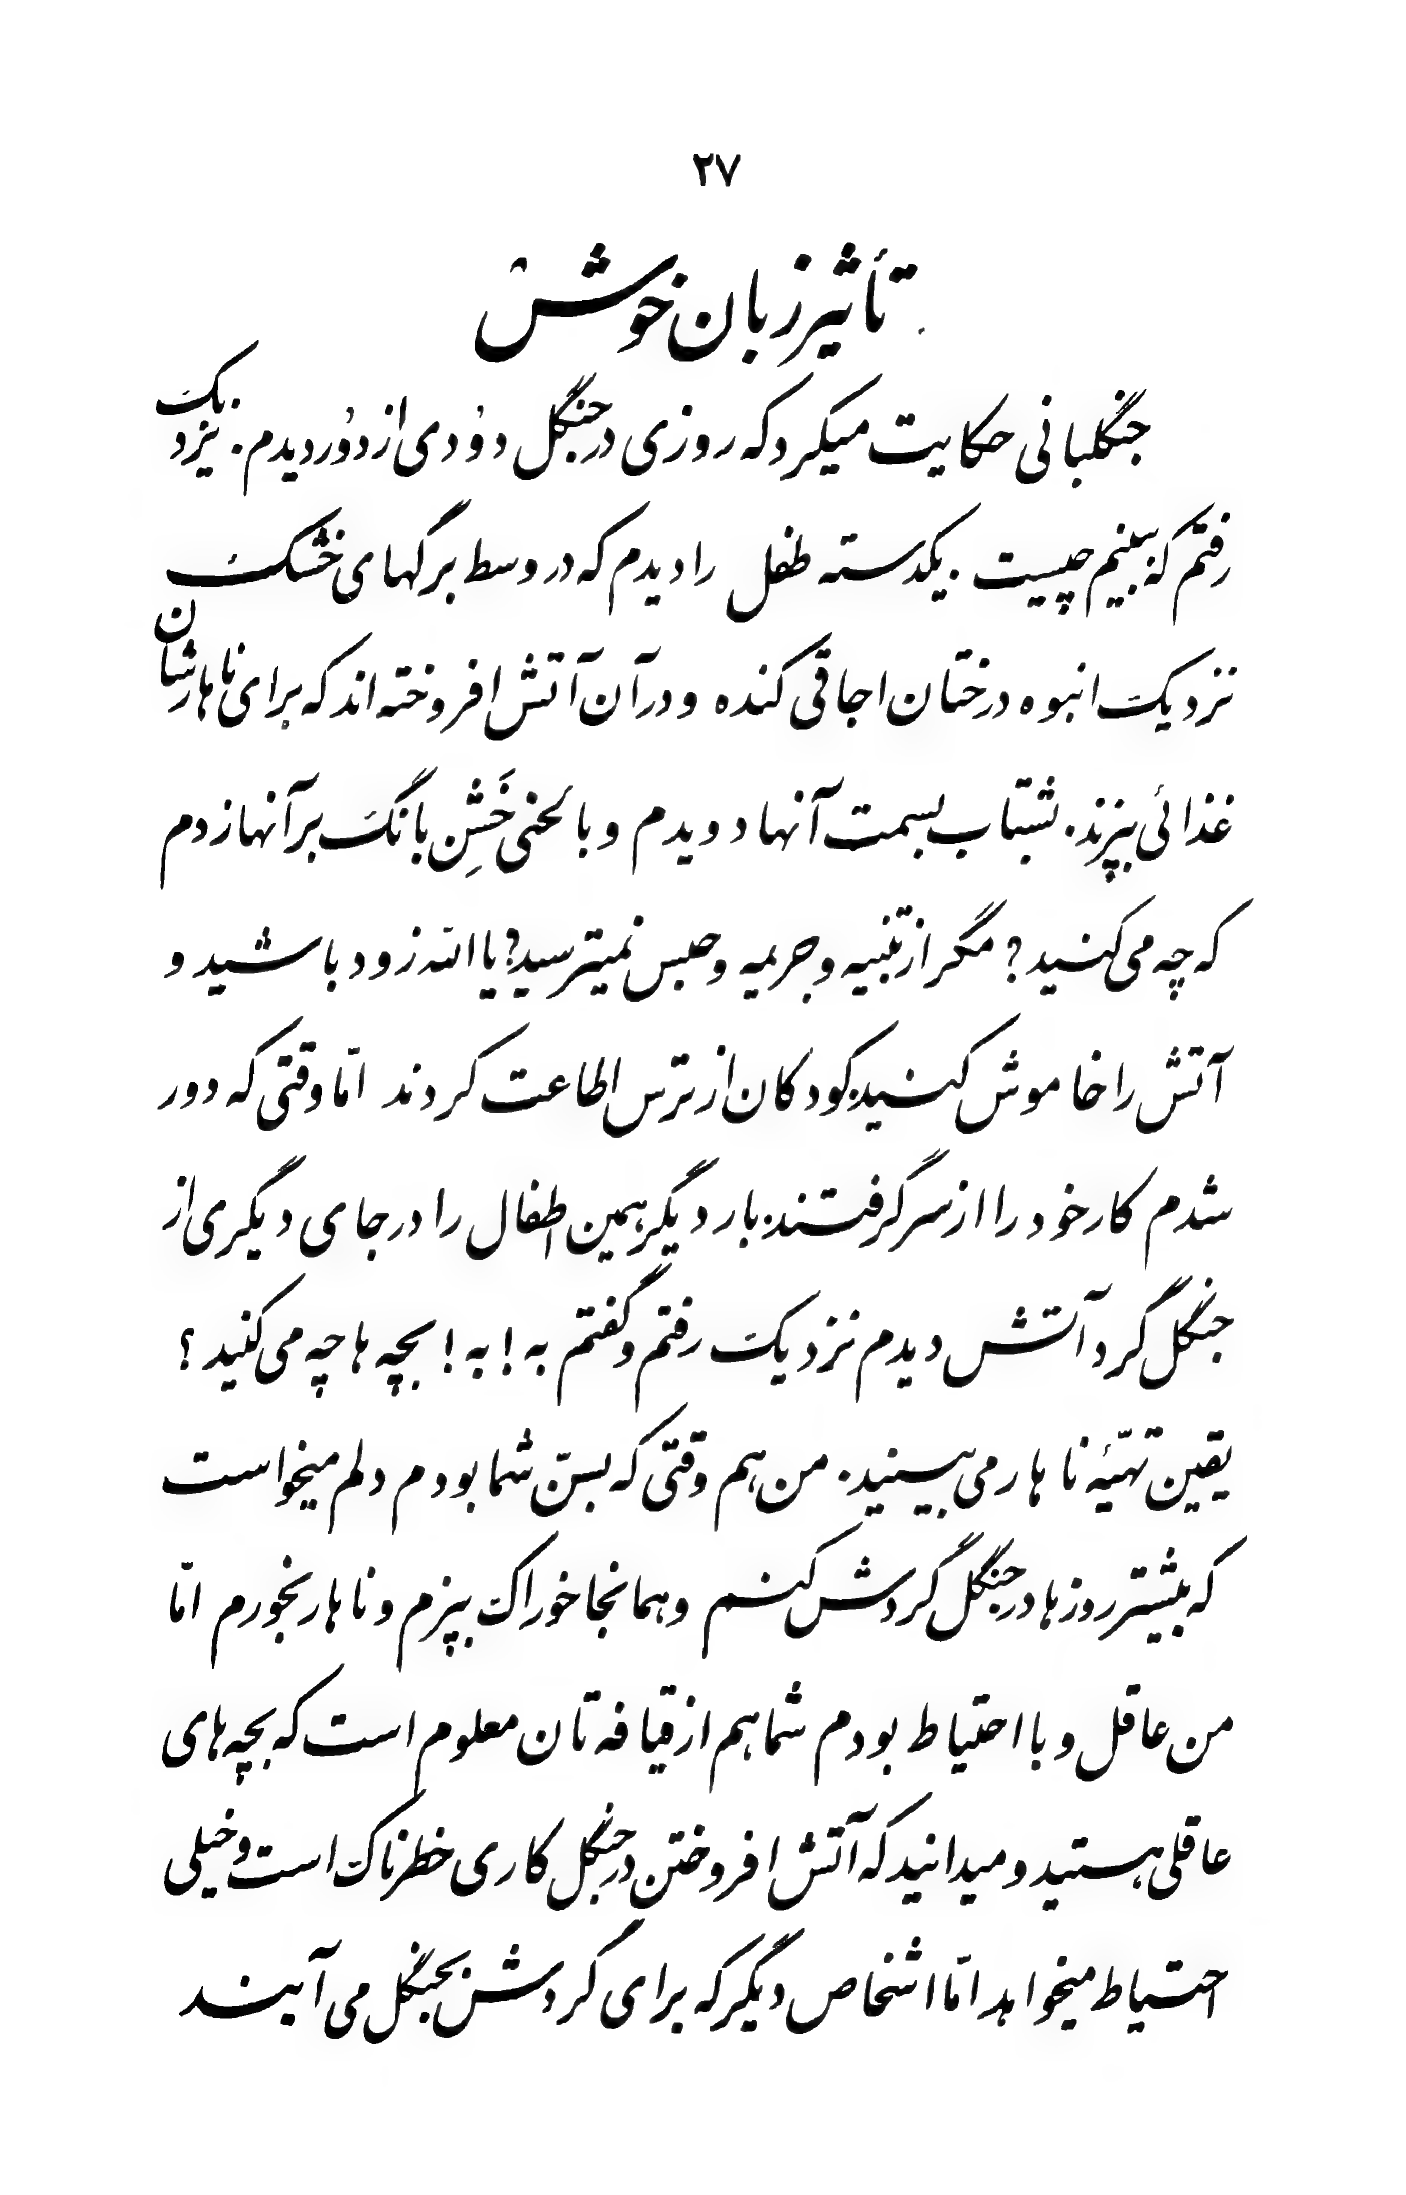 ۲۷
تأثیر زبان خوش
جنگلبانی حکایت میکرد که روزی در جنگل دودی از دور دیدم. نزدیک
رفتم که ببینم چیست. یکدسته طفل را دیدم که در وسط برگهای خشک
نزدیک انبوه درختان اجاقی کنده و در آن آتش افروخته اند که برای ناهارشان
غذائی بپزند. بشتاب بسمت آنها دویدم و با لحنی خَشِن بانگ بر آنها زدم
که چه می کنید؟ مگر از تنبیه و جریمه و حبس نمیترسید؟ یا الله زود باشید و
آتش را خاموش کنید. کودکان از ترس اطاعت کردند امّا وقتی که دور
شدم کار خود را از سر گرفتند. بار دیگر همین اطفال را در جای دیگری از
جنگل گرد آتش دیدم نزدیک رفتم و گفتم به! به! بچه ها چه می کنید؟
یقین تهیّه ناهار می بینید. من هم وقتی که بسنّ شما بودم دلم میخواست
که بیشتر روزها در جنگل گردش کنم و همانجا خوراک بپزم و ناهار بخورم امّا
من عاقل و با احتیاط بودم شما هم از قیافه تان معلوم است که بچه های
عاقلی هستید و میدانید که آتش افروختن در جنگل کاری خطرناک است و خیلی
احتیاط میخواهد امّا اشخاص دیگر که برای گردش بجنگل می آیند